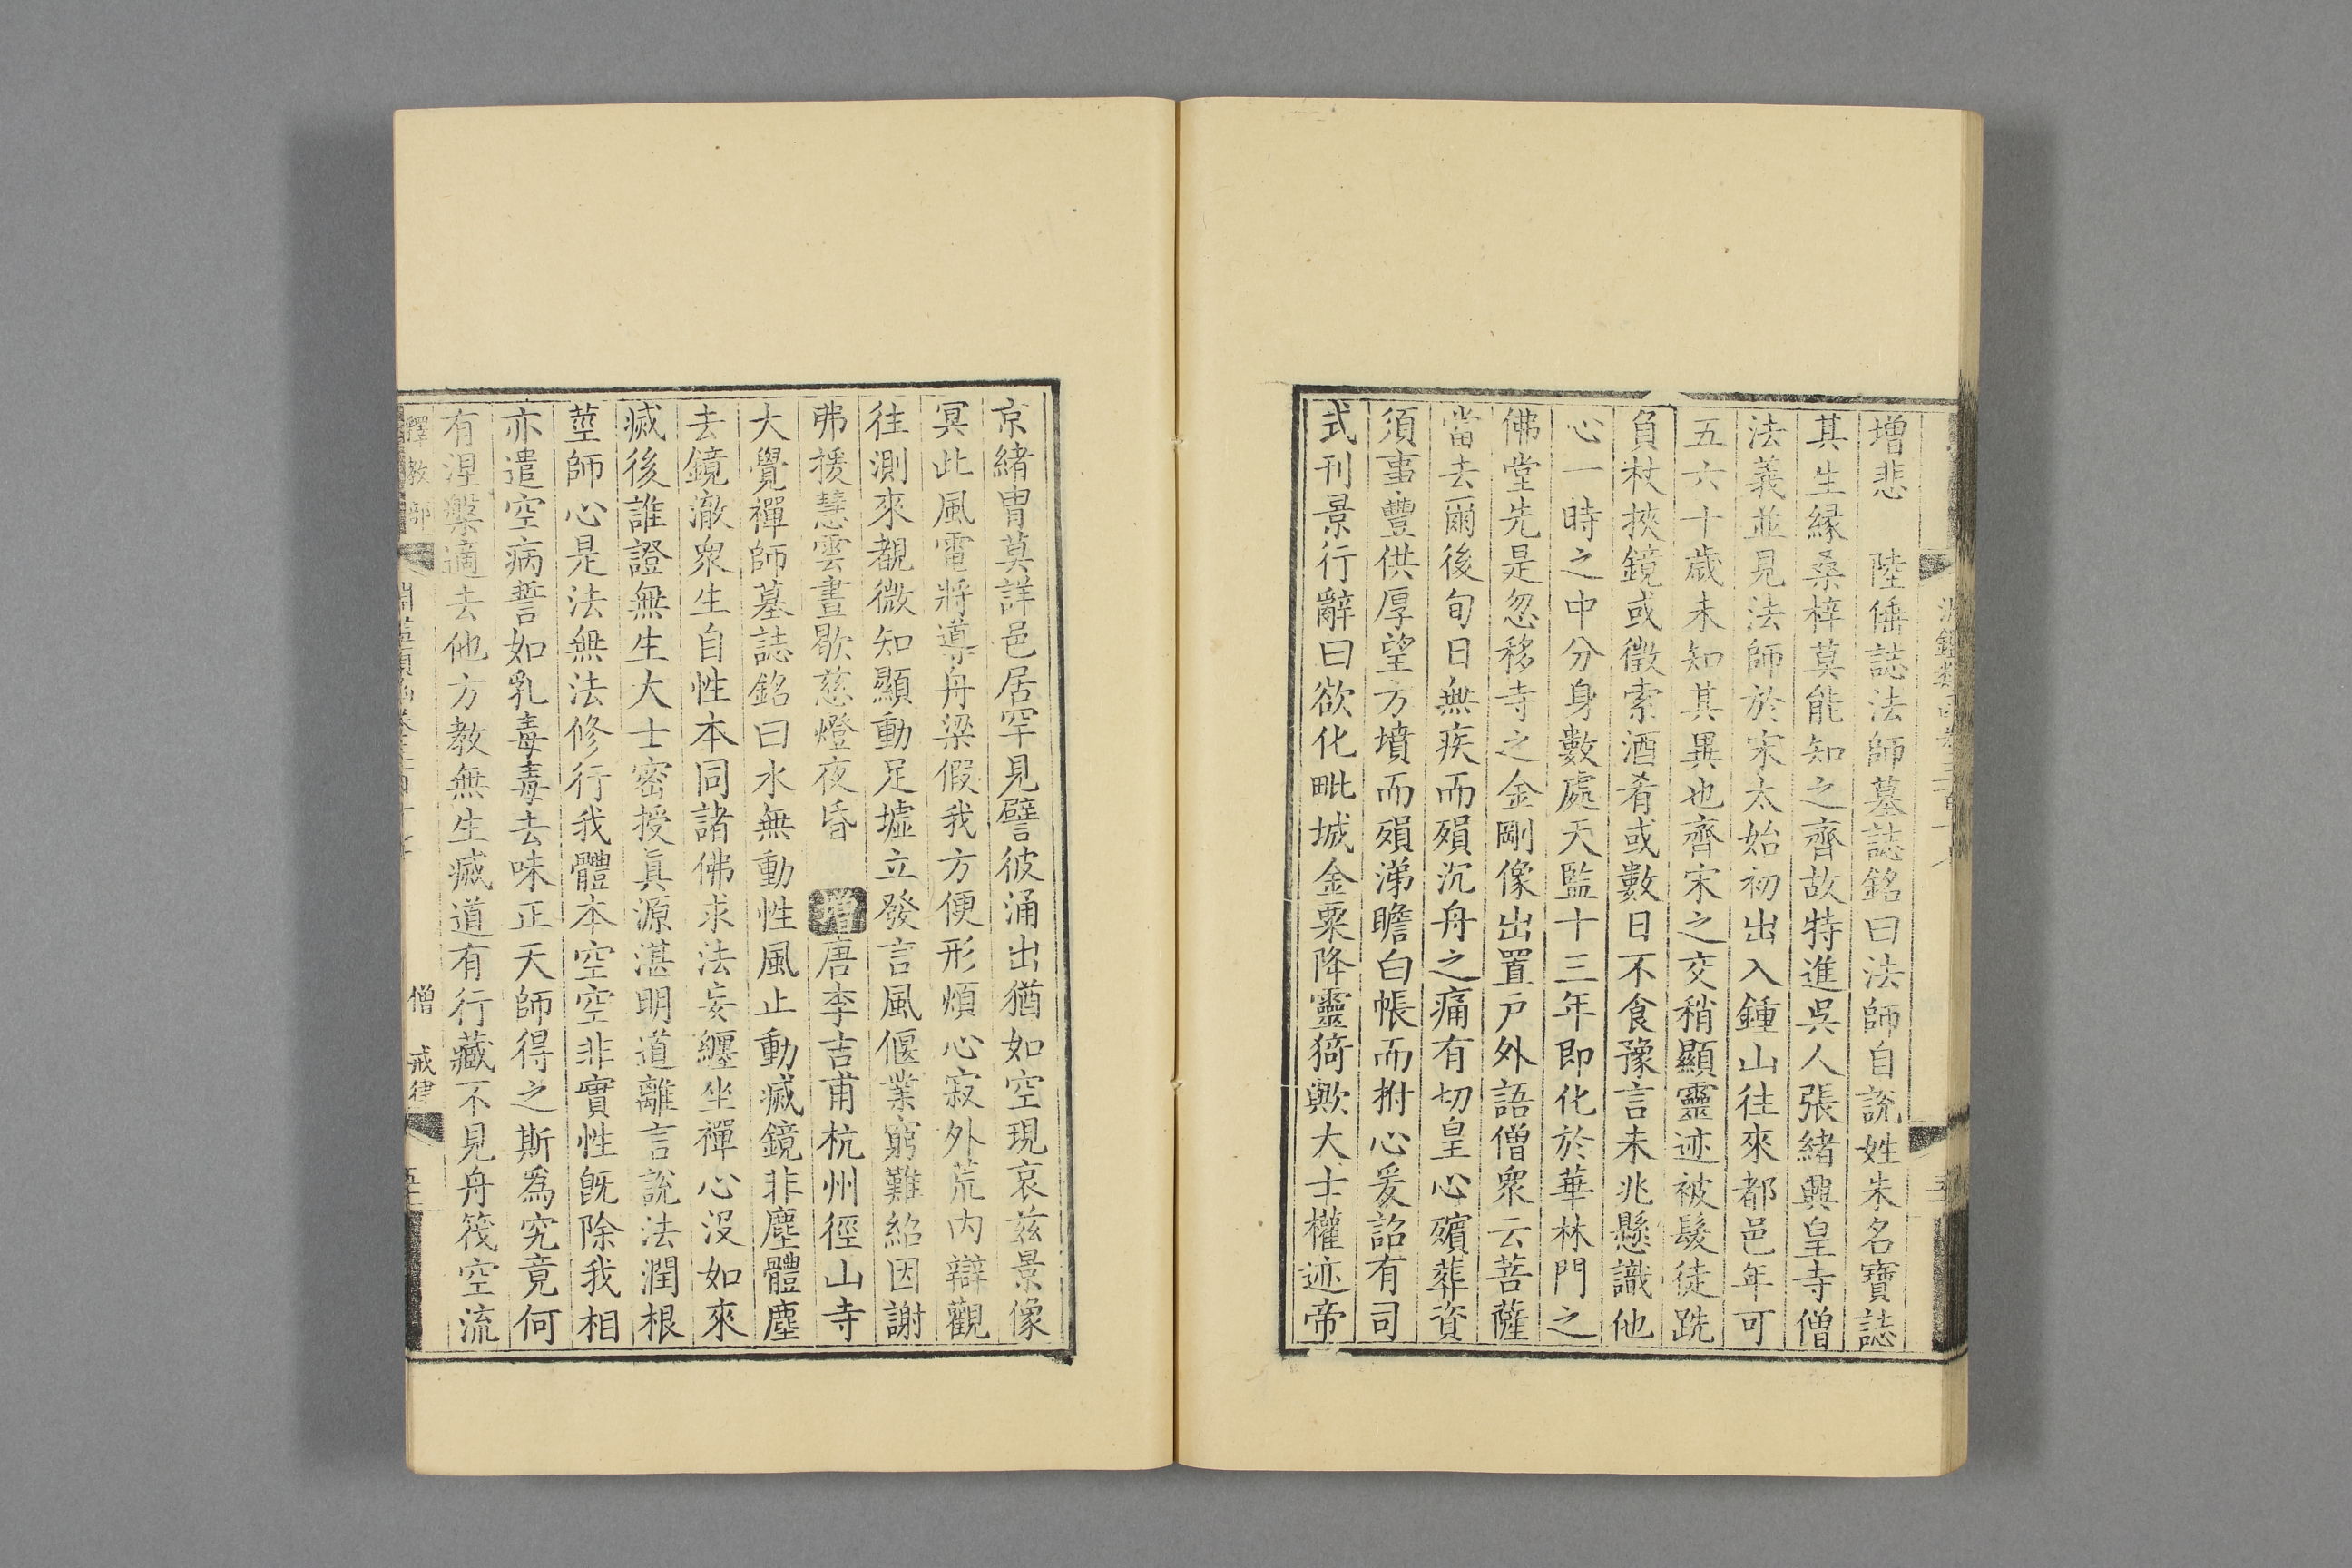 增悲　陸倕誌法師墓誌銘曰法師自說姓朱名寶誌
其生縁桑梓莫能知之齊故特進吳人張緒興皇寺僧
法義並見法師於宋太始初出入鍾山往來都邑年可
五六十歲未知其異也齊宋之交稍顯靈迹被髮徒跣
負杖挾鏡或徵索酒肴或數日不食豫言未兆懸識他
心一時之中分身數處天監十三年即化於華林門之
佛堂先是忽移寺之金剛像出置戶外語僧衆云菩薩
當去爾後旬日無疾而殞沉舟之痛有切皇心殯葬資
須事豐供厚望方墳而殞涕瞻白帳而拊心爰詔有司
式刊景行辭曰欲化毗城金粟降靈猗歟大士權迹帝
京緒胄莫詳邑居罕見譬彼涌出猶如空現哀茲景像
冥此風電將導舟梁假我方便形煩心寂外荒内辯觀
往測來覩微知顯動足墟立發言風偃業窮難紹因謝
弗援慧雲晝歇慈燈夜昏　增唐李吉甫杭州徑山寺
大覺禪師墓誌銘曰水無動性風止動滅鏡非塵體塵
去鏡澈衆生自性本同諸佛求法妄纏坐禪心没如來
滅後誰證無生大士密授眞源湛明道離言說法潤根
莖師心是法無法修行我體本空空非實性旣除我相
亦遣空病誓如乳毒毒去味正天師得之斯爲究竟何
有湼槃適去他方教無生滅道有行藏不見舟筏空流
釋教部
僧　戒律